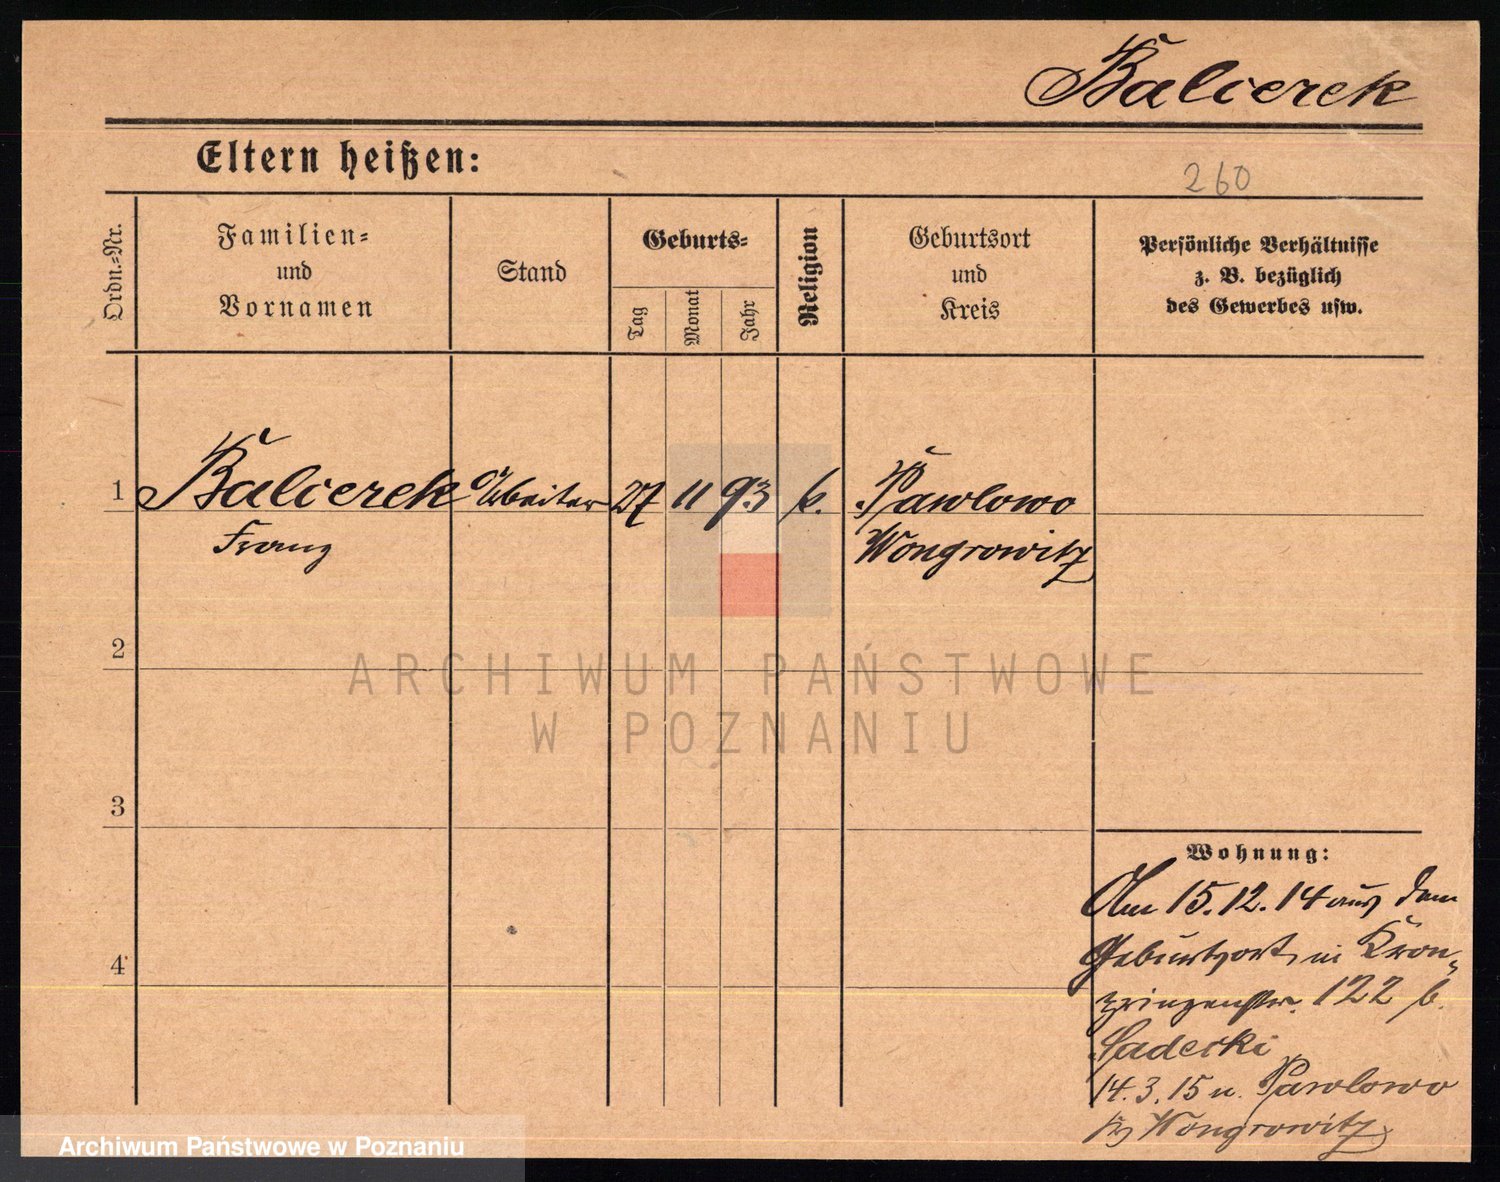 Balcerek
Eltern heißen:
260
Ordn.-Nr.
Familien-
und
Vornamen
Stand
Geburts-
Tag
Monat
Jahr
Religion
Geburtsort
und
Kreis
Persönliche Verhältnisse
z. B. bezüglich
des Gewerbes usw.
1
Balcerek
Arbeiter
27
11
93
k.
Pawlowo
Franz
Wongrowitz
2
ARCHIWUM PAŃSTWOWE
W POZNANIU
3
Wohnung:
Am 15.12.14 aus dem
Geburtsort in Kron-
4
prinzenstr. 122 b.
Sadecki
14.3.15 n. Pawlowo
Kr Wongrowitz
Archiwum Państwowe w Poznaniu